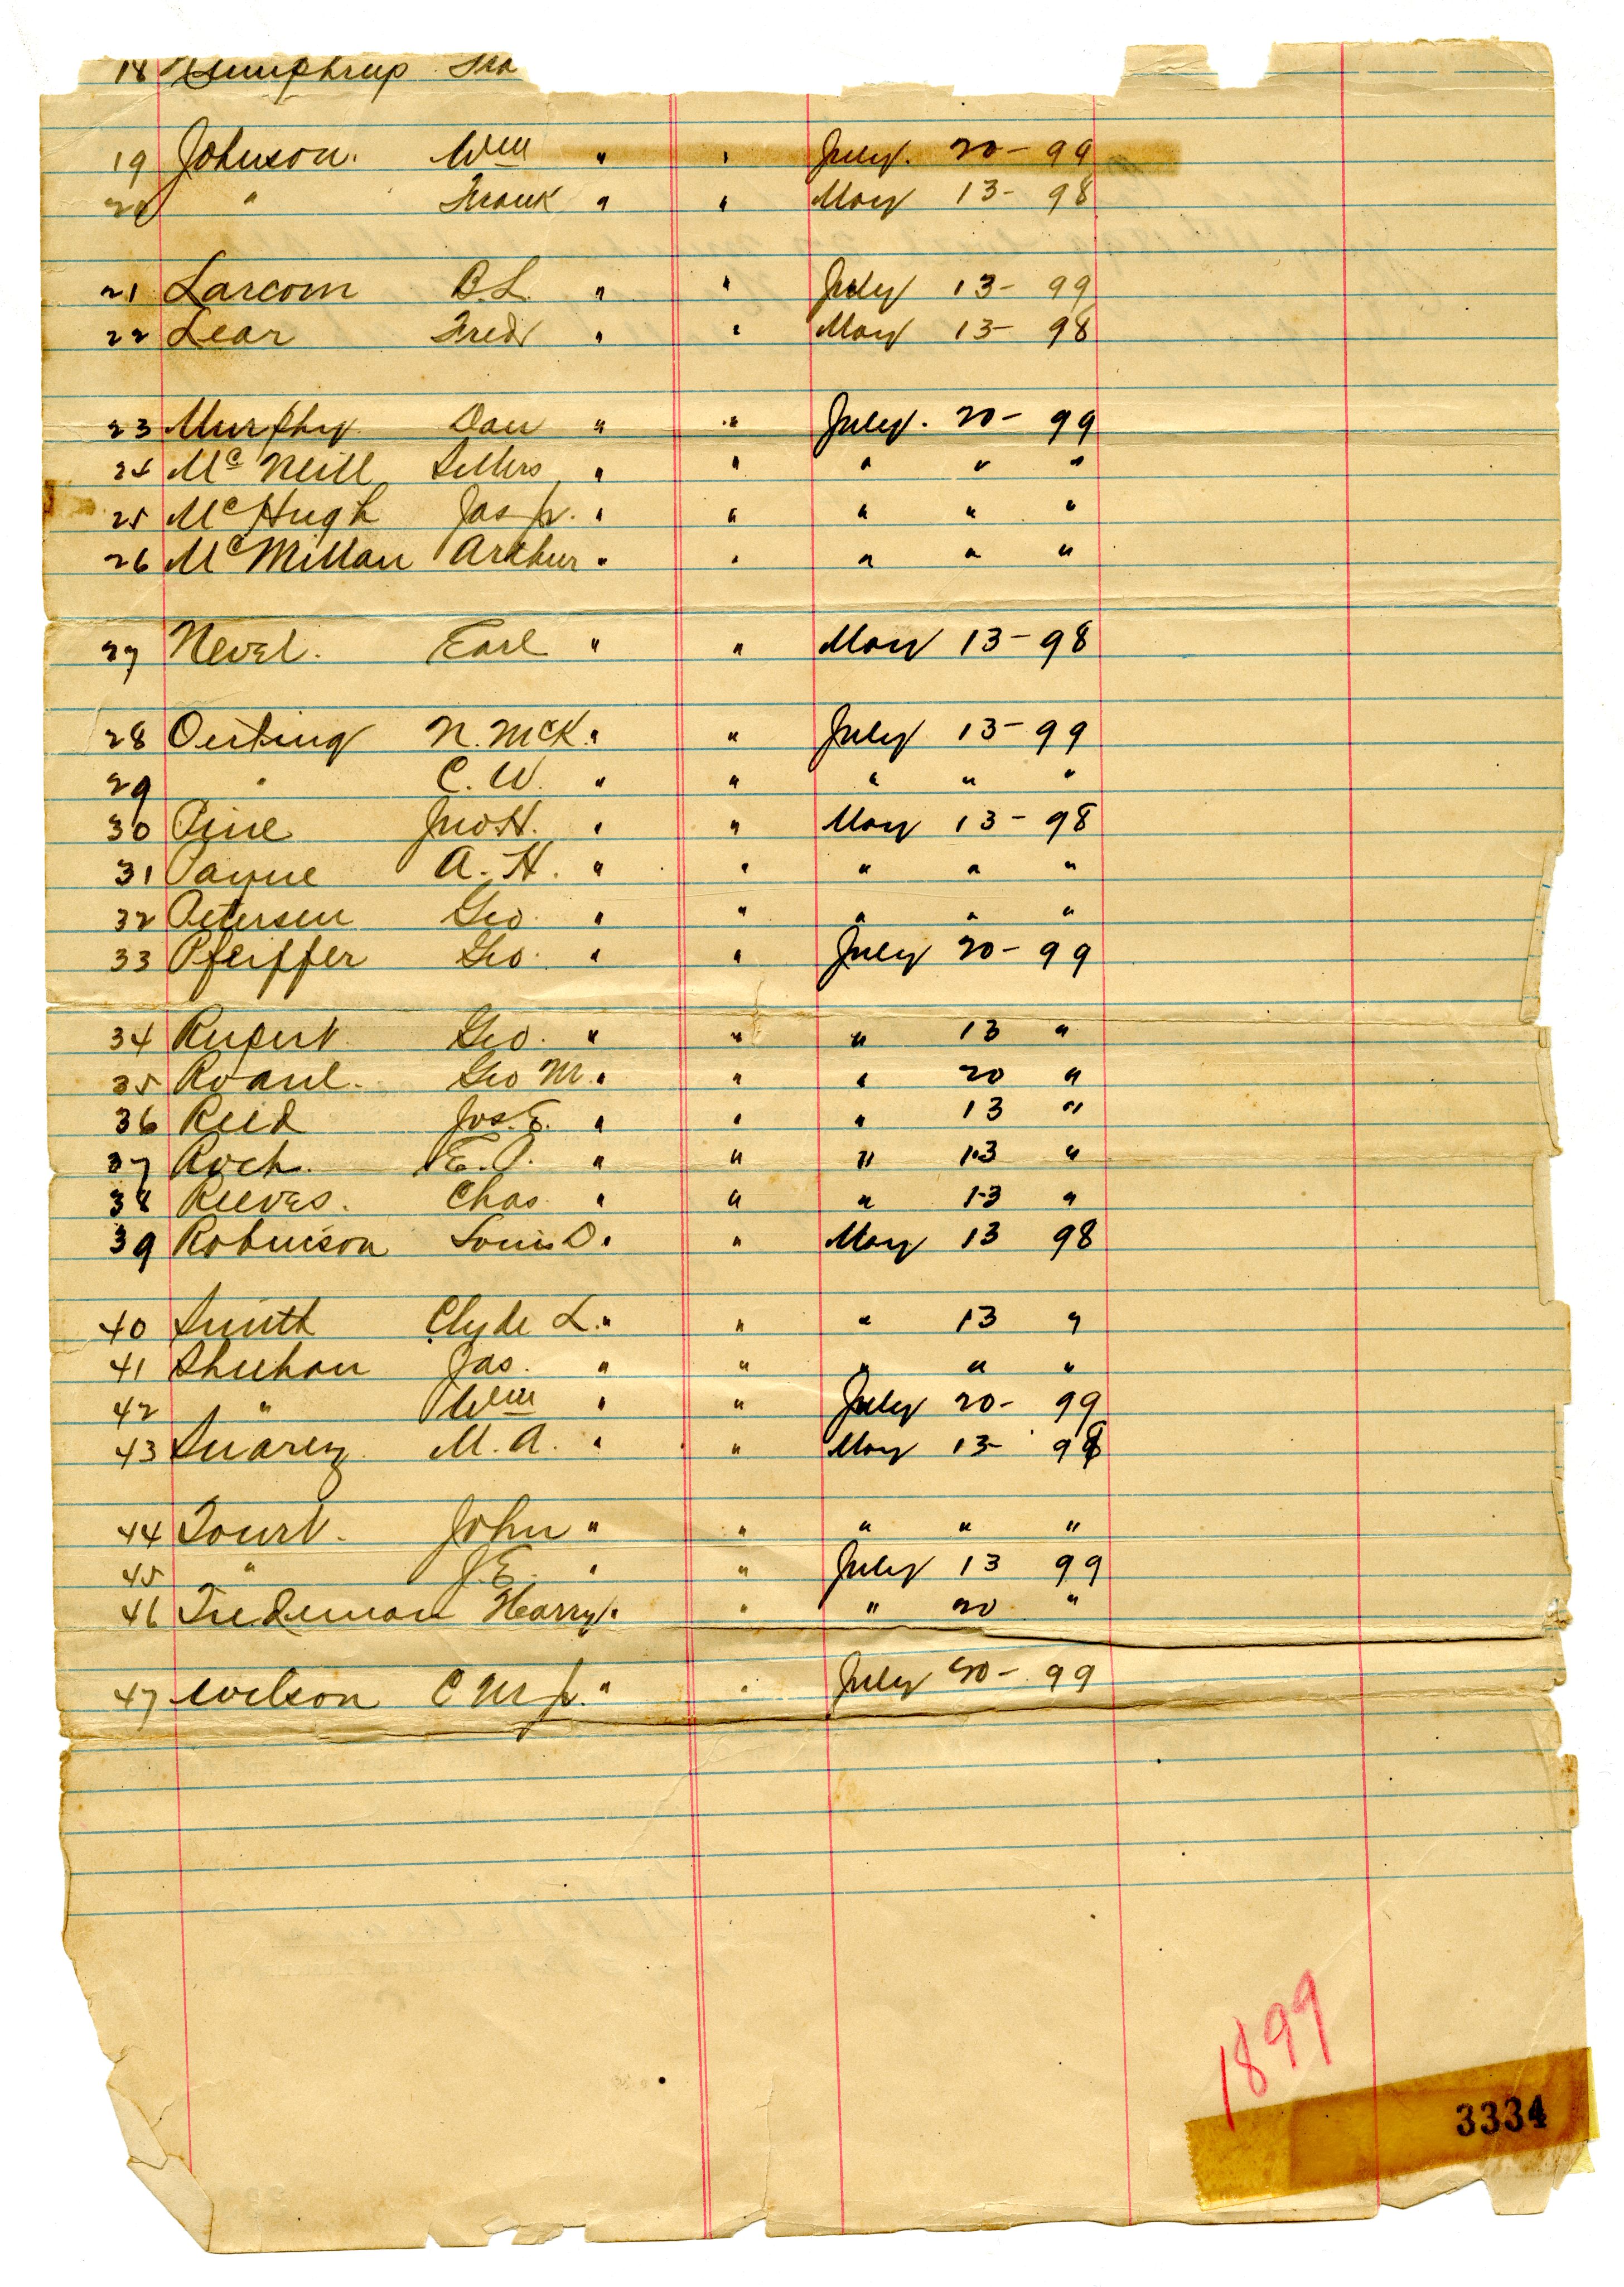 18 Humphrup
19 Johnson. Wm " " July. 20 - 99
20 " Frank " " May 13 - 98
21 Larcom B.L. " " July 13 - 99
22 Lear Fred " " May 13 - 98
23 Murphy Dan " " July. 20 - 99
24 McNeill Sellers " " " " "
25 McHugh Jas Jr. " " " " "
26 McMillan Arthur " " " " "
27 Nevel. Earl " " May 13 - 98
28 Oerting N. McK. " " July 13 - 99
29 " C. W. " " " " "
30 Pine Jno H. " " May 13 - 98
31 Payne A. H. " " " " "
32 Petersen Geo. " " " " "
33 Pfeiffer Geo. " " July 20 - 99
34 Rupert Geo. " " " 13 "
35 Roane. Geo M. " " " 20 "
36 Reed Jos. E. " " " 13 "
37 Roch. E. P. " " " 13 "
38 Reeves. Chas. " " " 13 "
39 Robinson Louis D. " " May 13 98
40 Smith Clyde L. " " " 13 "
41 Sheehan Jas. " " " " "
42 " Wm " " July 20 - 99
43 Suarez M. A. " " May 13 - 98
44 Tourt. John " " " " "
45 " J. E. " " July 13 99
46 Tiedeman Harry. " " " 20 "
47 Wilson C M Jr. " " July 20 - 99
1899
3334